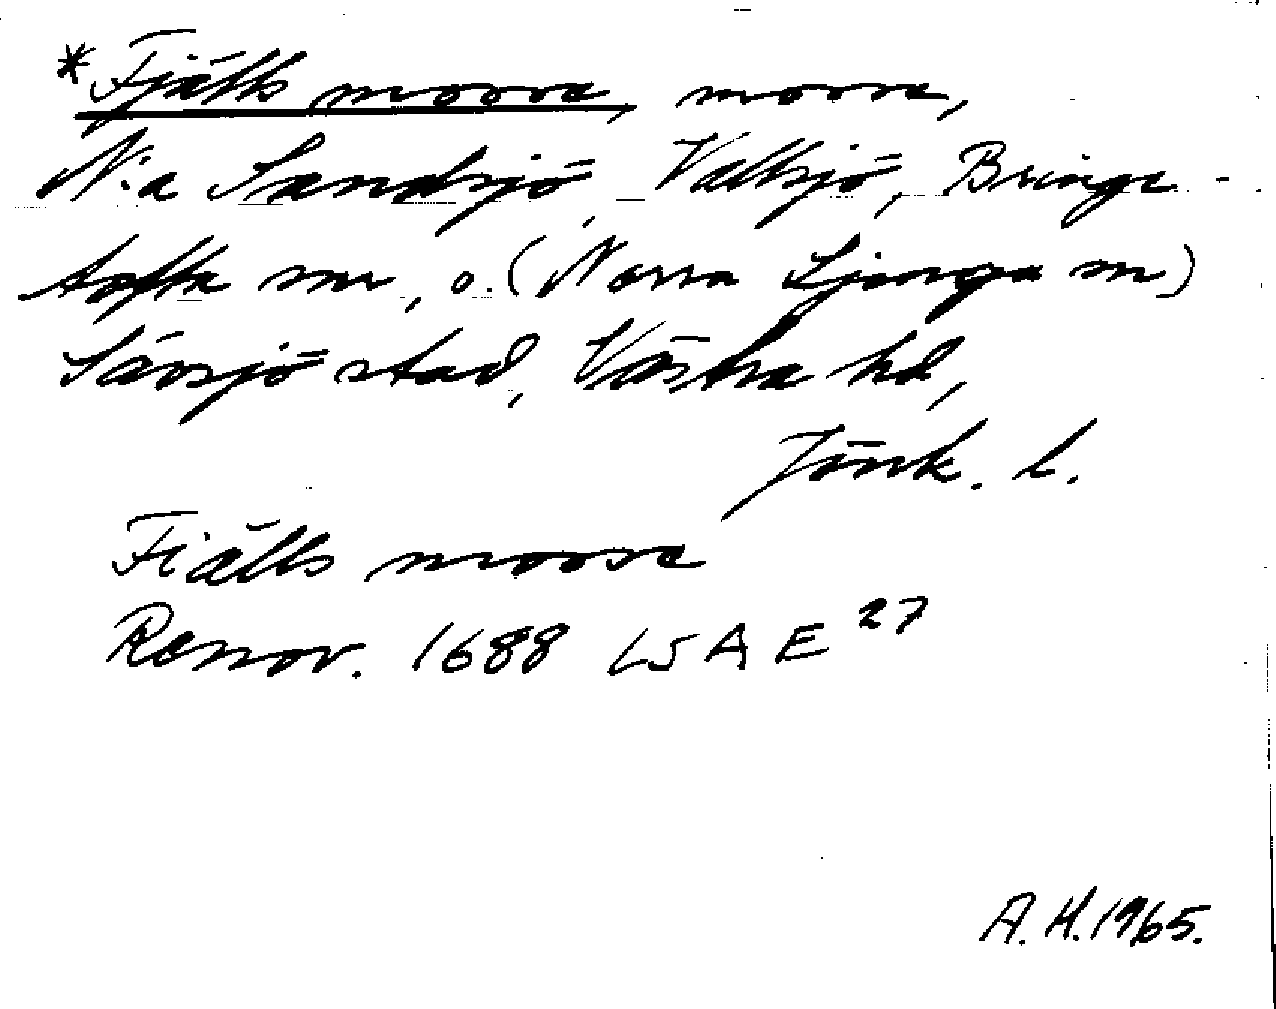 *Fjälls mosse, mosse,
N:a Sandsjö, Vallsjö, Bringe-
tofta snr, o. (Norra Ljunga sn)
Sävsjö stad, Västra hd,
Jönk. l.
Fiälls mosse
Renov. 1688 LSA E 27
A. H. 1965.